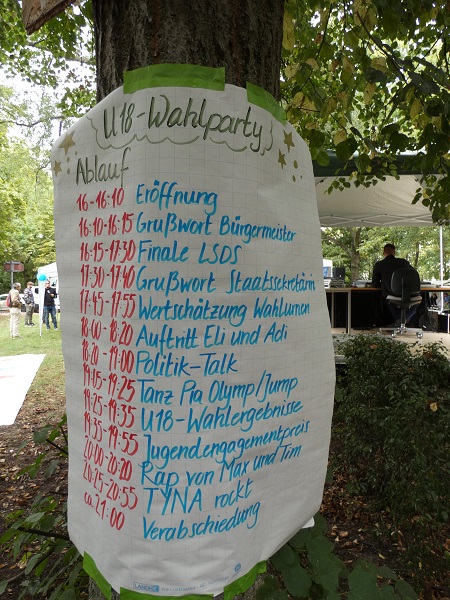 U18-Wahlparty
Ablauf
16-16:10 Eröffnung
16:10-16:15 Grußwort Bürgermeister
16:15-17:30 Finale LSDS
17:30-17:40 Grußwort Staatssekretärin
17:45-17:55 Wertschätzung Wahlurnen
18:00-18:20 Auftritt Eli und Adi
18:20-19:00 Politik-Talk
19:05-19:25 Tanz Pia Olymp/Jump
19:25-19:35 U18-Wahlergebnisse
19:35-19:55 Jugendengagementpreis
20:00-20:20 Rap von Max und Tim
20:25-20:55 TYNA rockt
ca. 21:00 Verabschiedung